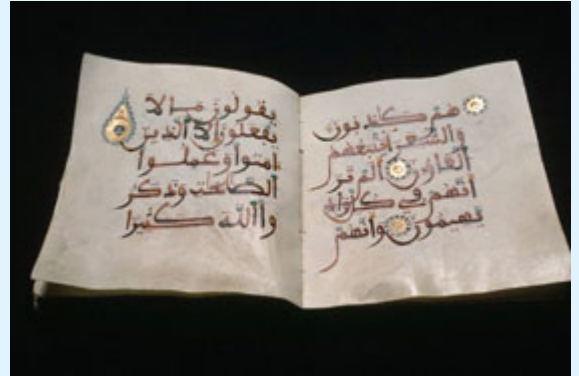 هم كاذبون
والشعراء يتبعهم
الغاوون ألم تر
أنهم في كل واد
يهيمون وأنهم
يقولون ما لا
يفعلون إلا الذين
آمنوا وعملوا
الصالحات وذكر
وا الله كثيرا